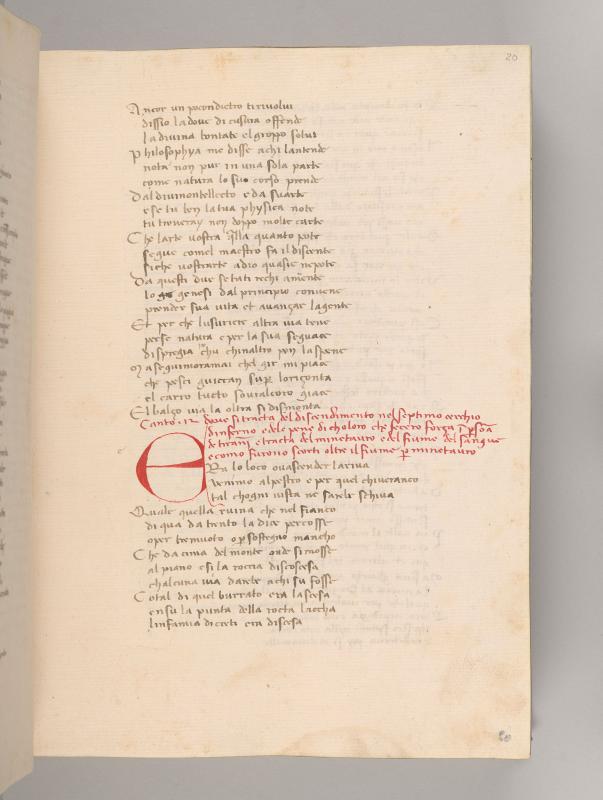 20
Ancor un pocondietro ti rivolvi
dissio la dove di cusura offende
la divina bontate el groppo solvi
Philosophya me disse a chi lantende
nota non pur in una sola parte
come natura lo suo corso prende
Dal divinontellecto e da suarte
e se tu ben la tua physica note
tu troveray non doppo molte carte
Che larte vostra quella quanto pote
segue comel maestro fa il discente
siche vostrarte a dio quasie nepote
Da questi due se tati rechi a mente
lo genesi dal principio convene
prender sua vita et avançar la gente
Et per che lusuriere altra via tene
per se natura e per la sua seguace
dispregia chin chinaltro pon la spene
Ma seguimi oramai chel gir mi piace
che pesci guiççan sup lorizonta
el carro tucto sovralcoro giace
El balço via la oltra si dismonta
Canto .12. dove si tracta del discendimento nel septimo cerchio
dinferno e dele pene di choloro che fecero força i psona
de tiranni e tracta del minotauro e del fiume del sangue
e como furono scorti oltre il fiume p minotauro
ERa lo loco ovascender la riva
venimo alpestro e per quel chiveranco
tal chogni vista ne sarebe schiva
Quale quella ruina che nel fianco
di qua da trento ladice percosse
o per tremuoto o p sostegno mancho
Che da cima del monte onde si mosse
al piano e si la roccia discoscesa
chalcuna via darebe a chi su fosse
Cotal di quel burrato era la scesa
en su la punta della rocta laccha
linfamia di creti era discesa
20